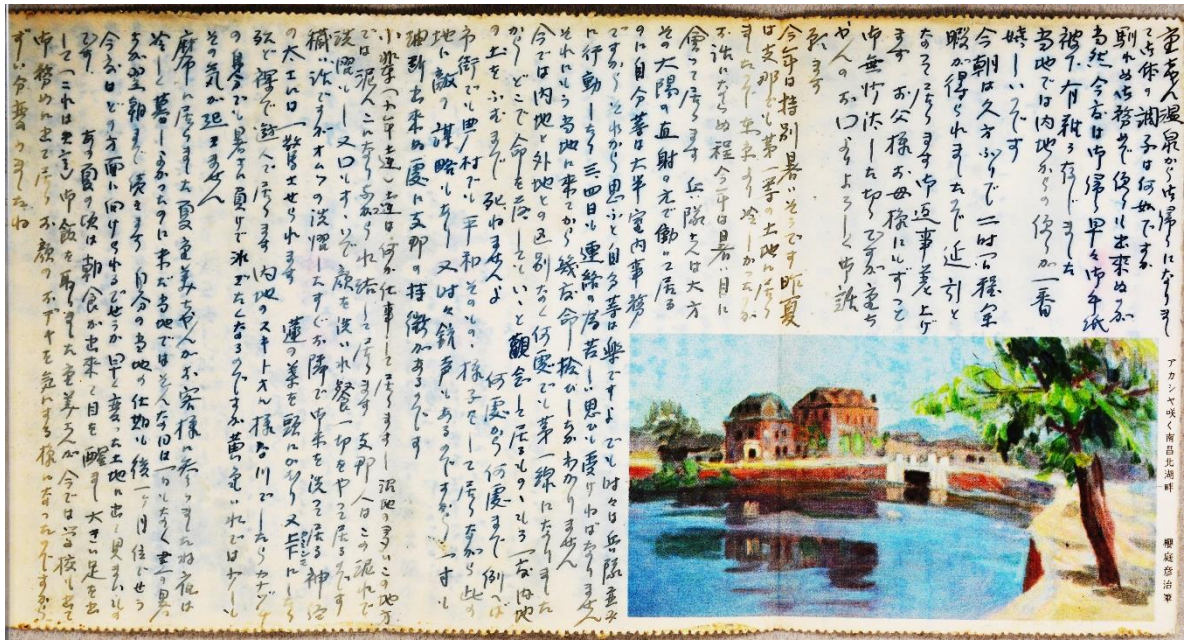 重美さん温泉から御帰りになりまし
て御体の調子は何如ですか
馴れぬ御務めで便りも出来ぬが
当然 今度は御帰り早々御手紙
被下有難う存じました
当地では内地からの便りが一番
嬉しいです
今朝は久方ぶりで二時間程余
暇が得られましたので延引と
なつて居ります御返事差上げ
ます お父様お母様にもずつと
御無沙汰した切りですが重ち
やんのお口よりよろしく御話
願ひます
今年は特別暑いそうです 昨夏
は支那でも第一等の土地に居り
まして東京より冷しかつたが
お話にならぬ程今年は暑い目に
会つて居ります 兵隊さんは大方
その太陽の直射の元で働いて居る
のに自分等は大半室内事務
ですから それから思ふと自分等は楽ですよ でも時々は兵隊並み
に行動したり三、四日も連絡の為苦しい思ひも受けねばなりません
それにもう当地に来てから幾度命拾ひしたかわかりません
今では内地と外地との区別なく何処でも第一線になりました
から どこで命を落してもいいと観念して居るもののもう一度内地
の土をふむまで 死ねませんよ 何処から何処まで 例へば
市街でも農村でも平和そのものの様子をして居りながら此の
地に敵の謀略もあり 又時々銃声もあるのですから 一寸も
油断出来ぬ処に支那の特徴があるのです
小輩(少年達)達は何か仕事をして居ります
では泥んこになりながら水浴して居ります 支那人はこの泥水で
洗濯もし 又口もすすいで顔を洗ひ炊餐一切をやつて居るのです
お隣で御米を洗つて居る神経
の太さには一驚させられます 蓮の葉を頭にかぶり又上下にし
歌で裸で遊んで居ります 内地のスキトオル様な谷川でしたらカナヅチ
の自分でも暑さに負けて泳ぎたくなるのですが黄色い水では少しも
その気が起りません
麻布に居りました夏重美ちやんがお客様に来りましたね 夜は
冷しく暮しよかつたのに未だ当地ではそんな日は一日もなく昼の暑
さが翌朝まで続きます 自分の当地の仕期も後一ヶ月位でせう
今度はどの方面に向けられるでせうか 早く変つた土地に出て見たいもの
です あの夏の頃は朝食が出来て目を醒し大きい足を出
して(これは失言)御飯を取りました重美さんが 今では学校も出て
御務めに出て居り お顔のオデキを気にする様になつたのですから
ずい分変りましたね
アカシヤ咲く南昌北湖畔
櫻庭彦治筆